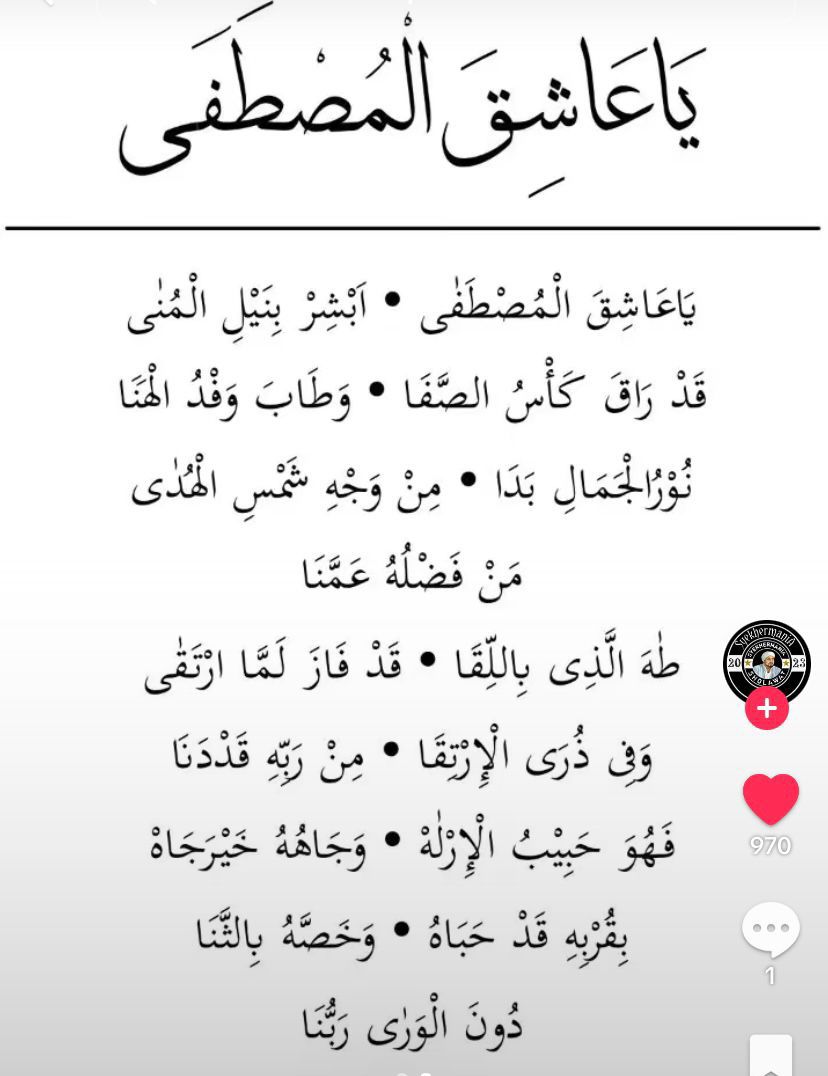 يَاعَاشِقَ الْمُصْطَفَى
يَاعَاشِقَ الْمُصْطَفٰى • اَبْشِرْ بِنَيْلِ الْمُنٰى
قَدْ رَاقَ كَأْسُ الصَّفَا • وَطَابَ وَفْدُ الْهَنَا
نُوْرُالْجَمَالِ بَدَا • مِنْ وَجْهِ شَمْسِ الْهُدٰى
مَنْ فَضْلُهُ عَمَّنَا
طٰهَ الَّذِى بِاللِّقَا • قَدْ فَازَ لَمَّا ارْتَقٰى
وَفِى ذُرَى الْإِرْتِقَا • مِنْ رَبِّهِ قَدْدَنَا
فَهُوَ حَبِيْبُ الْإِرْلٰهْ • وَجَاهُهُ خَيْرَجَاهْ
بِقُرْبِهِ قَدْ حَبَاهُ • وَخَصَّهُ بِالثَّنَا
دُونَ الْوَرٰى رَبُّنَا
Syekhermania
SYEKHERMANIA
20 23
SHOLAWAT
970
1